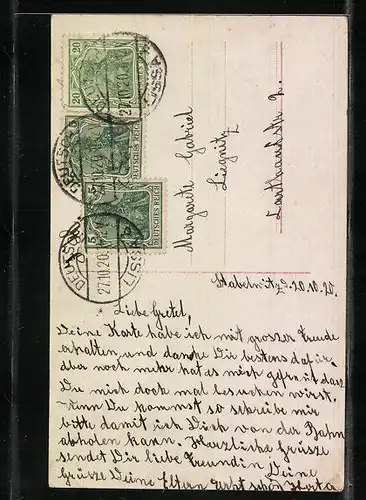 20 20
DEUTSCHES REICH
5 5
DEUTSCHES REICH
DEUTSCH LISSA
27.10.20.
Margarete Gabriel
Liegnitz
Stabelwitz d. 20.10.20.
Liebe Gretel,
Deine Karte habe ich mit grosser Freude
erhalten und danke Dir bestens dafür,
aber noch mehr hat es mich gefreut dass
Du mich doch mal besuchen wirst.
Wenn Du kommst so schreibe mir
bitte damit ich Dich von der Bahn
abholen kann. Herzliche Grüsze
sendet Dir liebe Freundin Deine
Grüsze Deine Eltern recht schön Herta